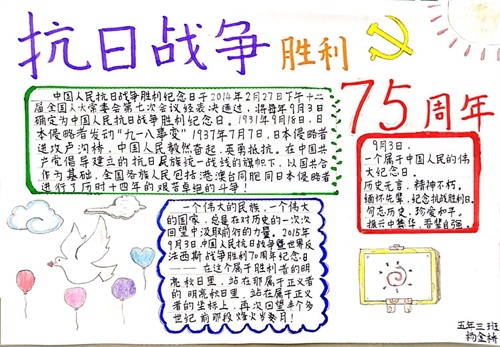 抗日战争胜利
75周年
中国人民抗日战争胜利纪念日于2014年2月27日下午十二
届全国人大常委会第七次会议经表决通过，将每年9月3日
确定为中国人民抗日战争胜利纪念日。1931年9月18日，日
本侵略者发动“九一八事变”1937年7月7日，日本侵略者
进攻卢沟桥，中国人民毅然奋起，英勇抵抗。在中国共
产党倡导建立的抗日民族统一战线的旗帜下，以国共合
作为基础，全国各族人民包括港澳台同胞同日本侵略者
进行了历时十四年的艰苦卓绝的斗争！
9月3日，
一个属于中国人民的伟
大纪念日。
历史无言，精神不朽。
缅怀先辈，纪念抗战胜利日。
勿忘历史，珍爱和平。
振兴中华，吾辈自强。
一个伟大的民族，一个伟大
的国家，总是在对历史的一次次
回望中汲取前行的力量。2015年
9月3日，中国人民抗日战争暨世界反
法西斯战争胜利70周年纪念日
——在这个属于胜利者的明
亮秋日里，站在那属于正义者
的明亮秋日里，站在属于正义
者的坐标上，再次回望半个多
世纪前那段烽火岁月！
五年三班